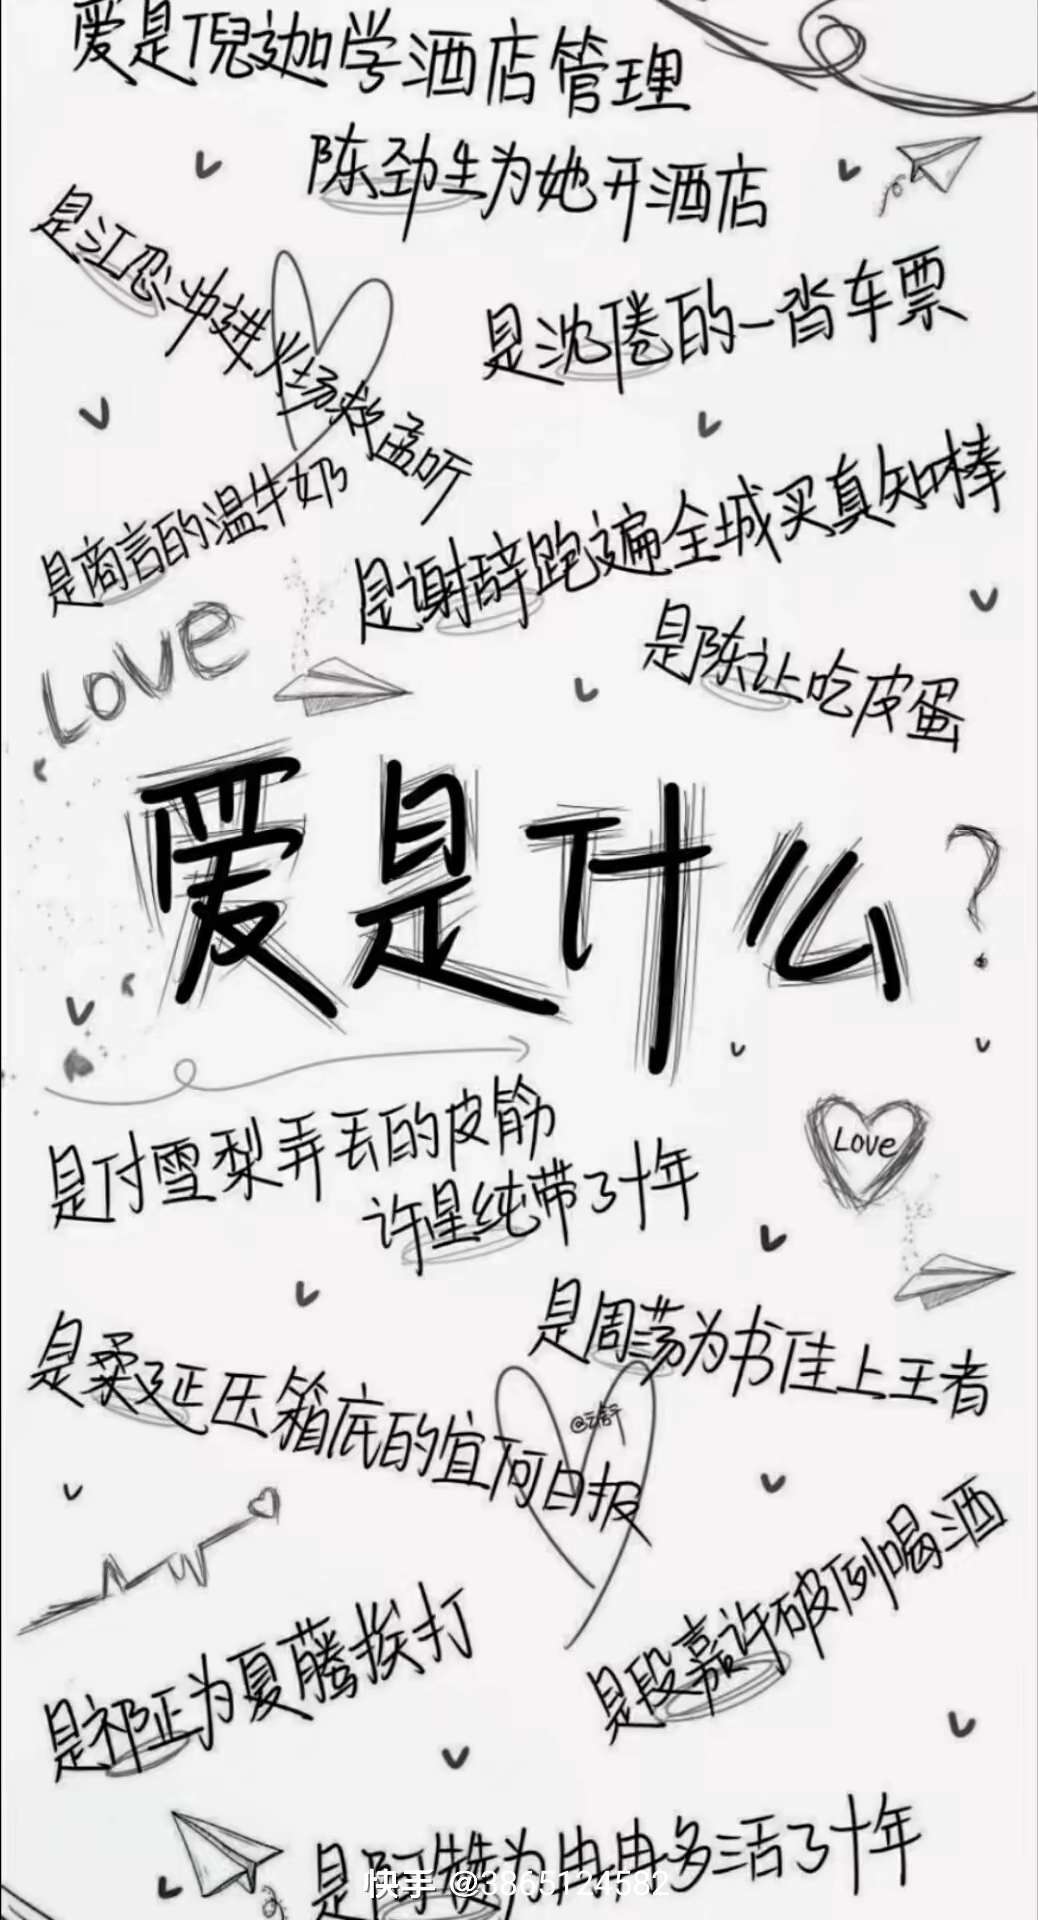 爱是倪迦学酒店管理
陈劲生为她开酒店
是江忍冲进火场救孟听
是沈倦的一沓车票
是商言的温牛奶
是谢辞跑遍全城买真知棒
是陈让吃皮蛋
Love
爱是什么?
是付雪梨弄丢的皮筋
许星纯带了十年
Love
是周荡为书佳上王者
是柔延压箱底的宜河日报
@云舒
是段嘉许破例喝酒
是祁正为夏藤挨打
是阿犊为冉冉多活了十年
快手 @3865124582